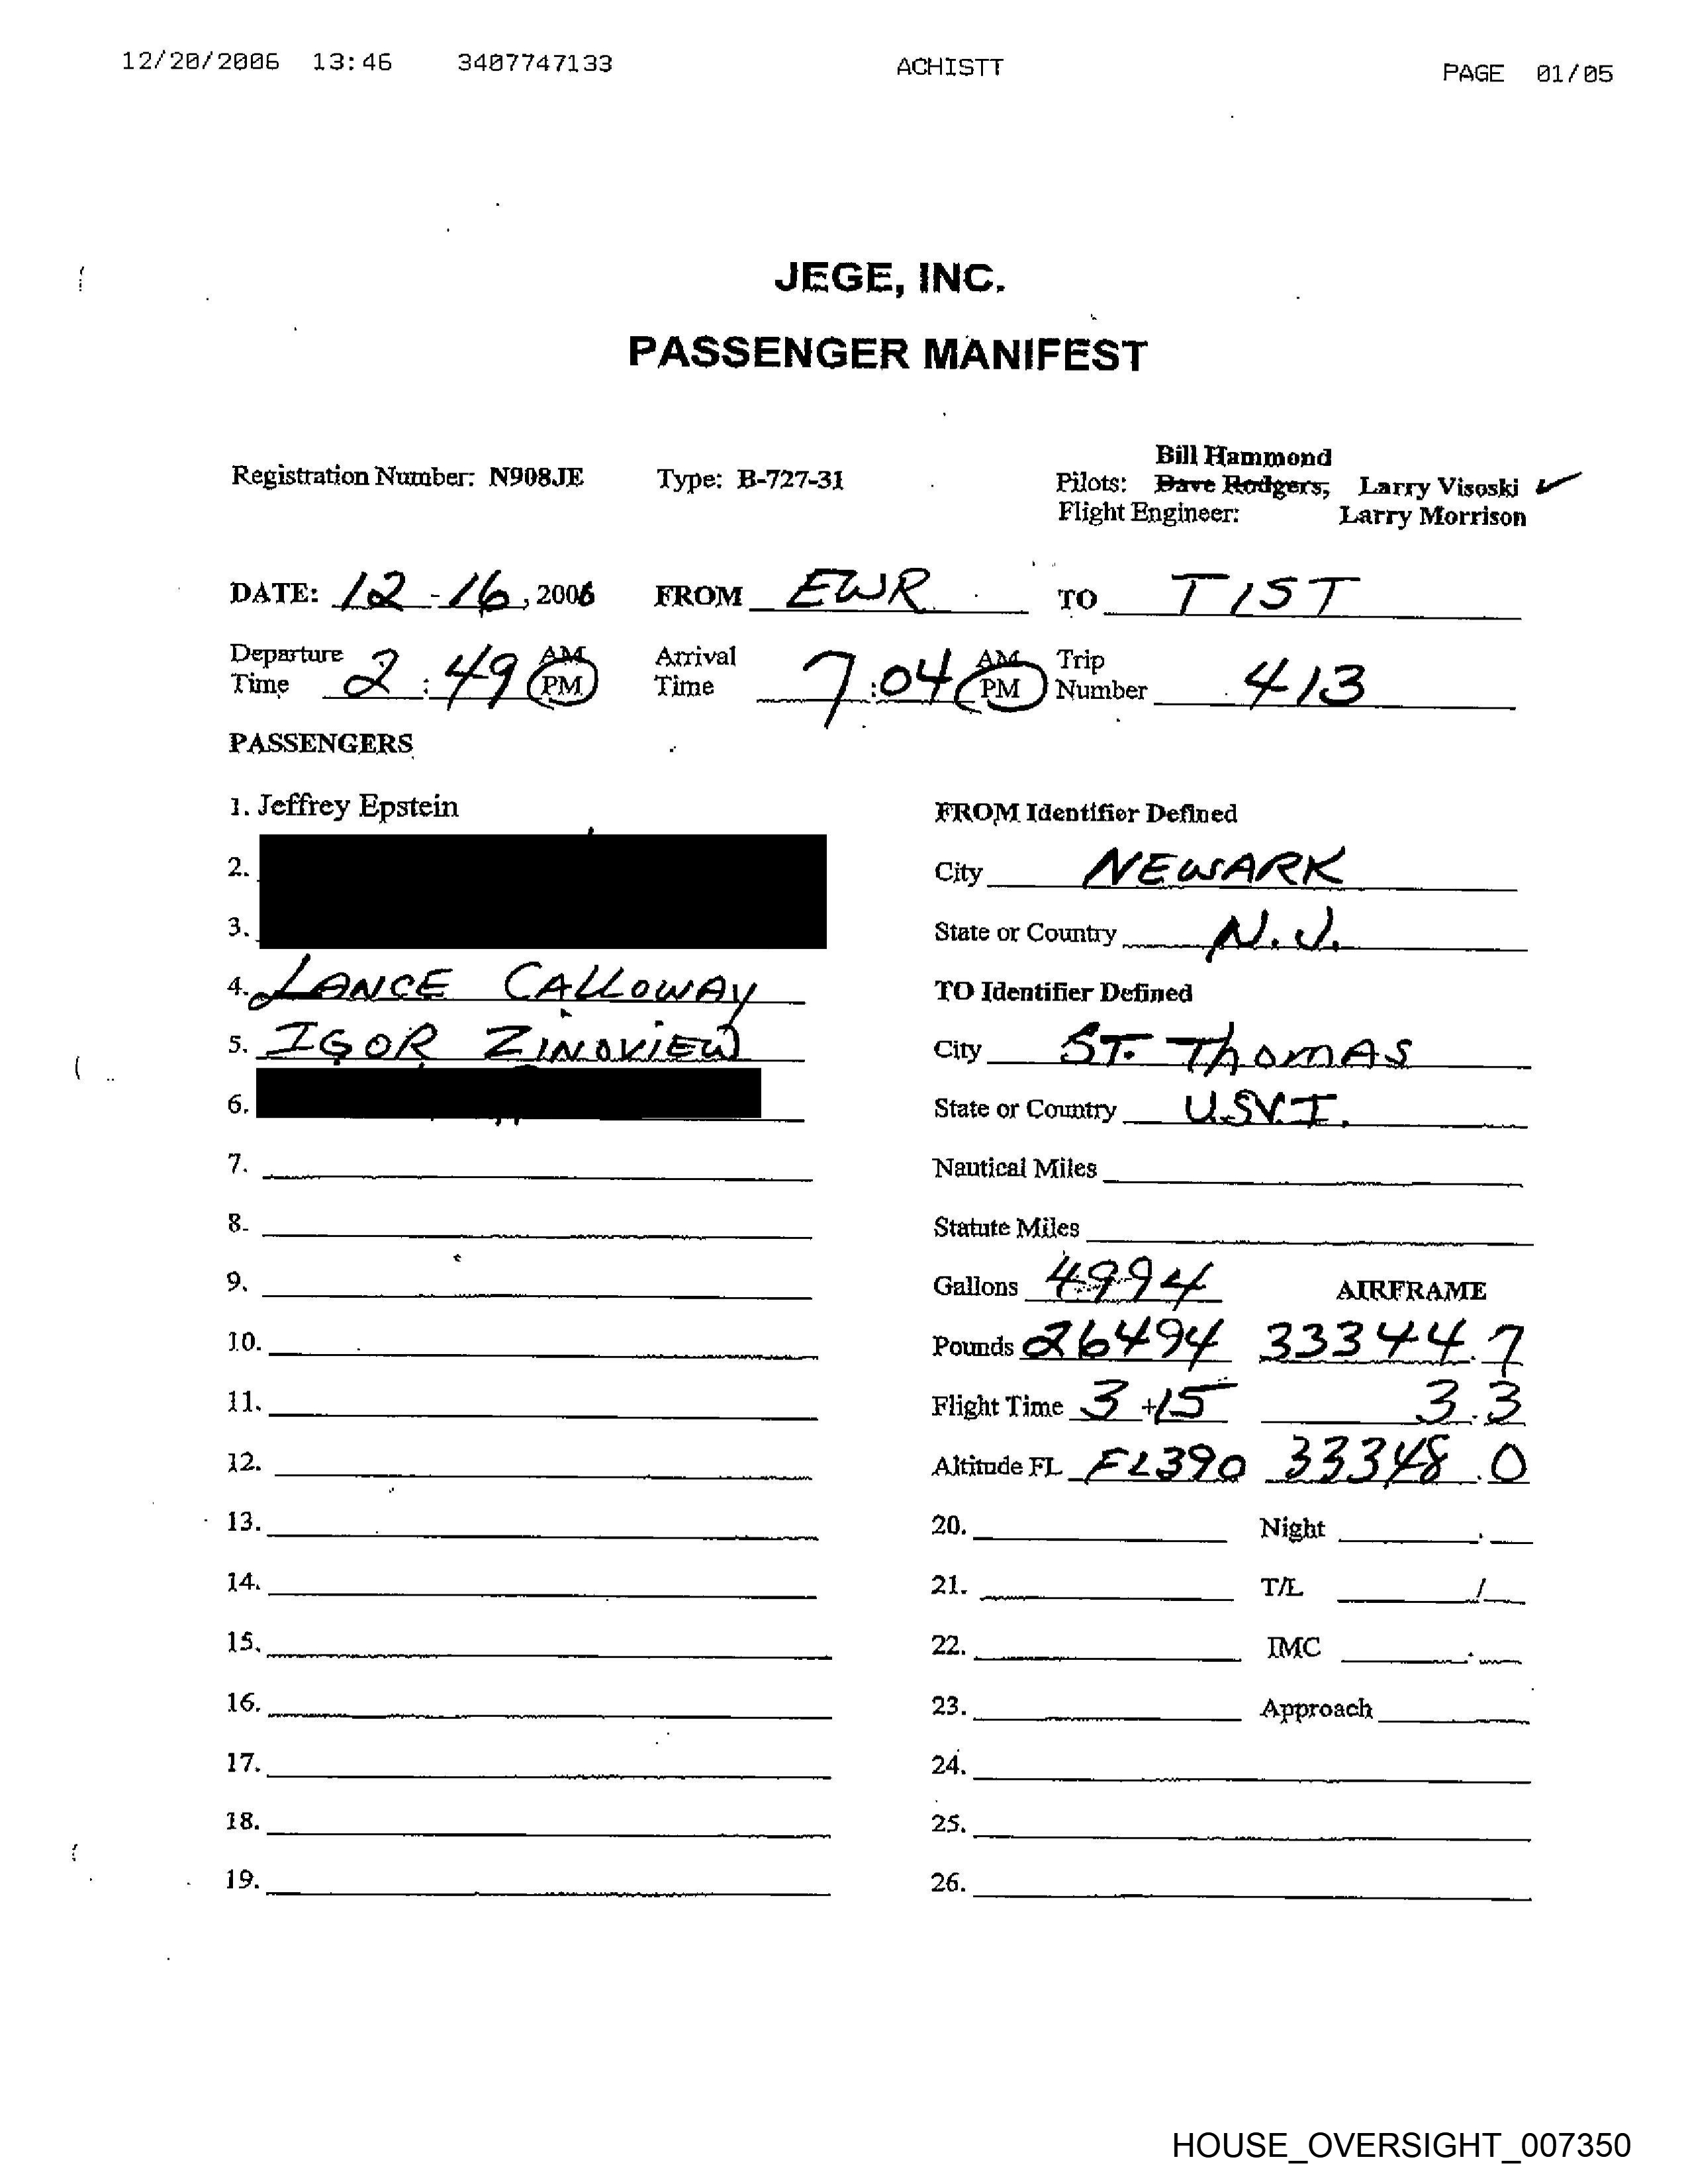 12/20/2006 13:46 3407747133 ACHISTT PAGE 01/05
JEGE, INC.
PASSENGER MANIFEST
Bill Hammond
Registration Number: N908JE Type: B-727-31 Pilots: Dave Rodgers, Larry Visoski ✓
Flight Engineer: Larry Morrison
DATE: 12-16, 2006 FROM EWR TO TIST
Departure Time 2:49 AM PM Arrival Time 7:04 AM PM Trip Number 413
PASSENGERS
1. Jeffrey Epstein
2.
3.
4. LANCE CALLOWAY
5. IGOR ZINOVIEW
6.
7.
8.
9.
10.
11.
12.
13.
14.
15.
16.
17.
18.
19.
FROM Identifier Defined
City NEWARK
State or Country N.J.
TO Identifier Defined
City ST. THOMAS
State or Country U.S.V.I.
Nautical Miles
Statute Miles
Gallons 4994 AIRFRAME
Pounds 26494 33344.7
Flight Time 3+15 3.3
Altitude FL FL390 33348.0
20. Night .
21. T/L /
22. IMC .
23. Approach
24.
25.
26.
HOUSE_OVERSIGHT_007350